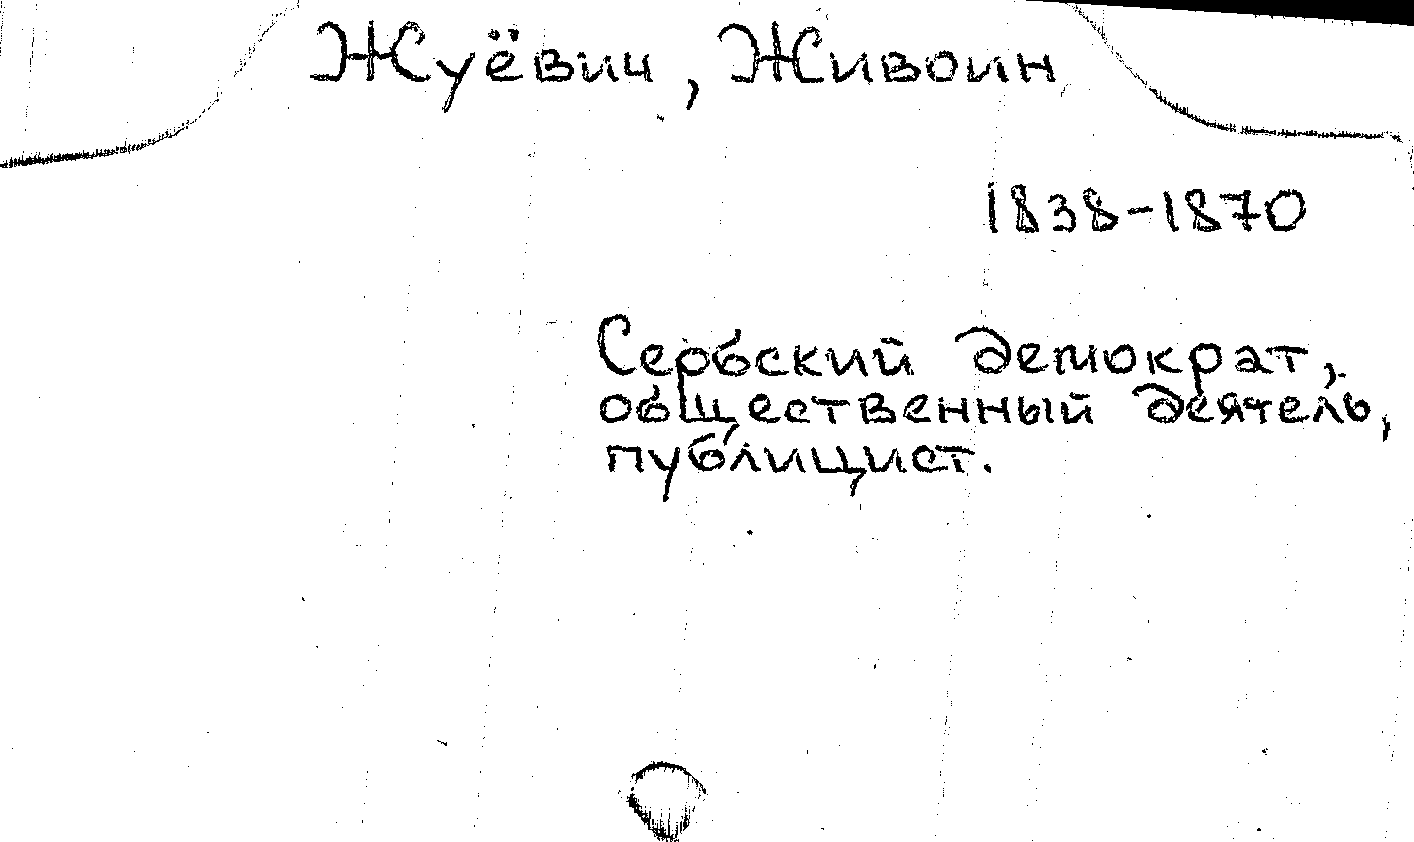 Жуёвич, Живоин
1838-1870
Сербский демократ,
общественный деятель,
публицист.